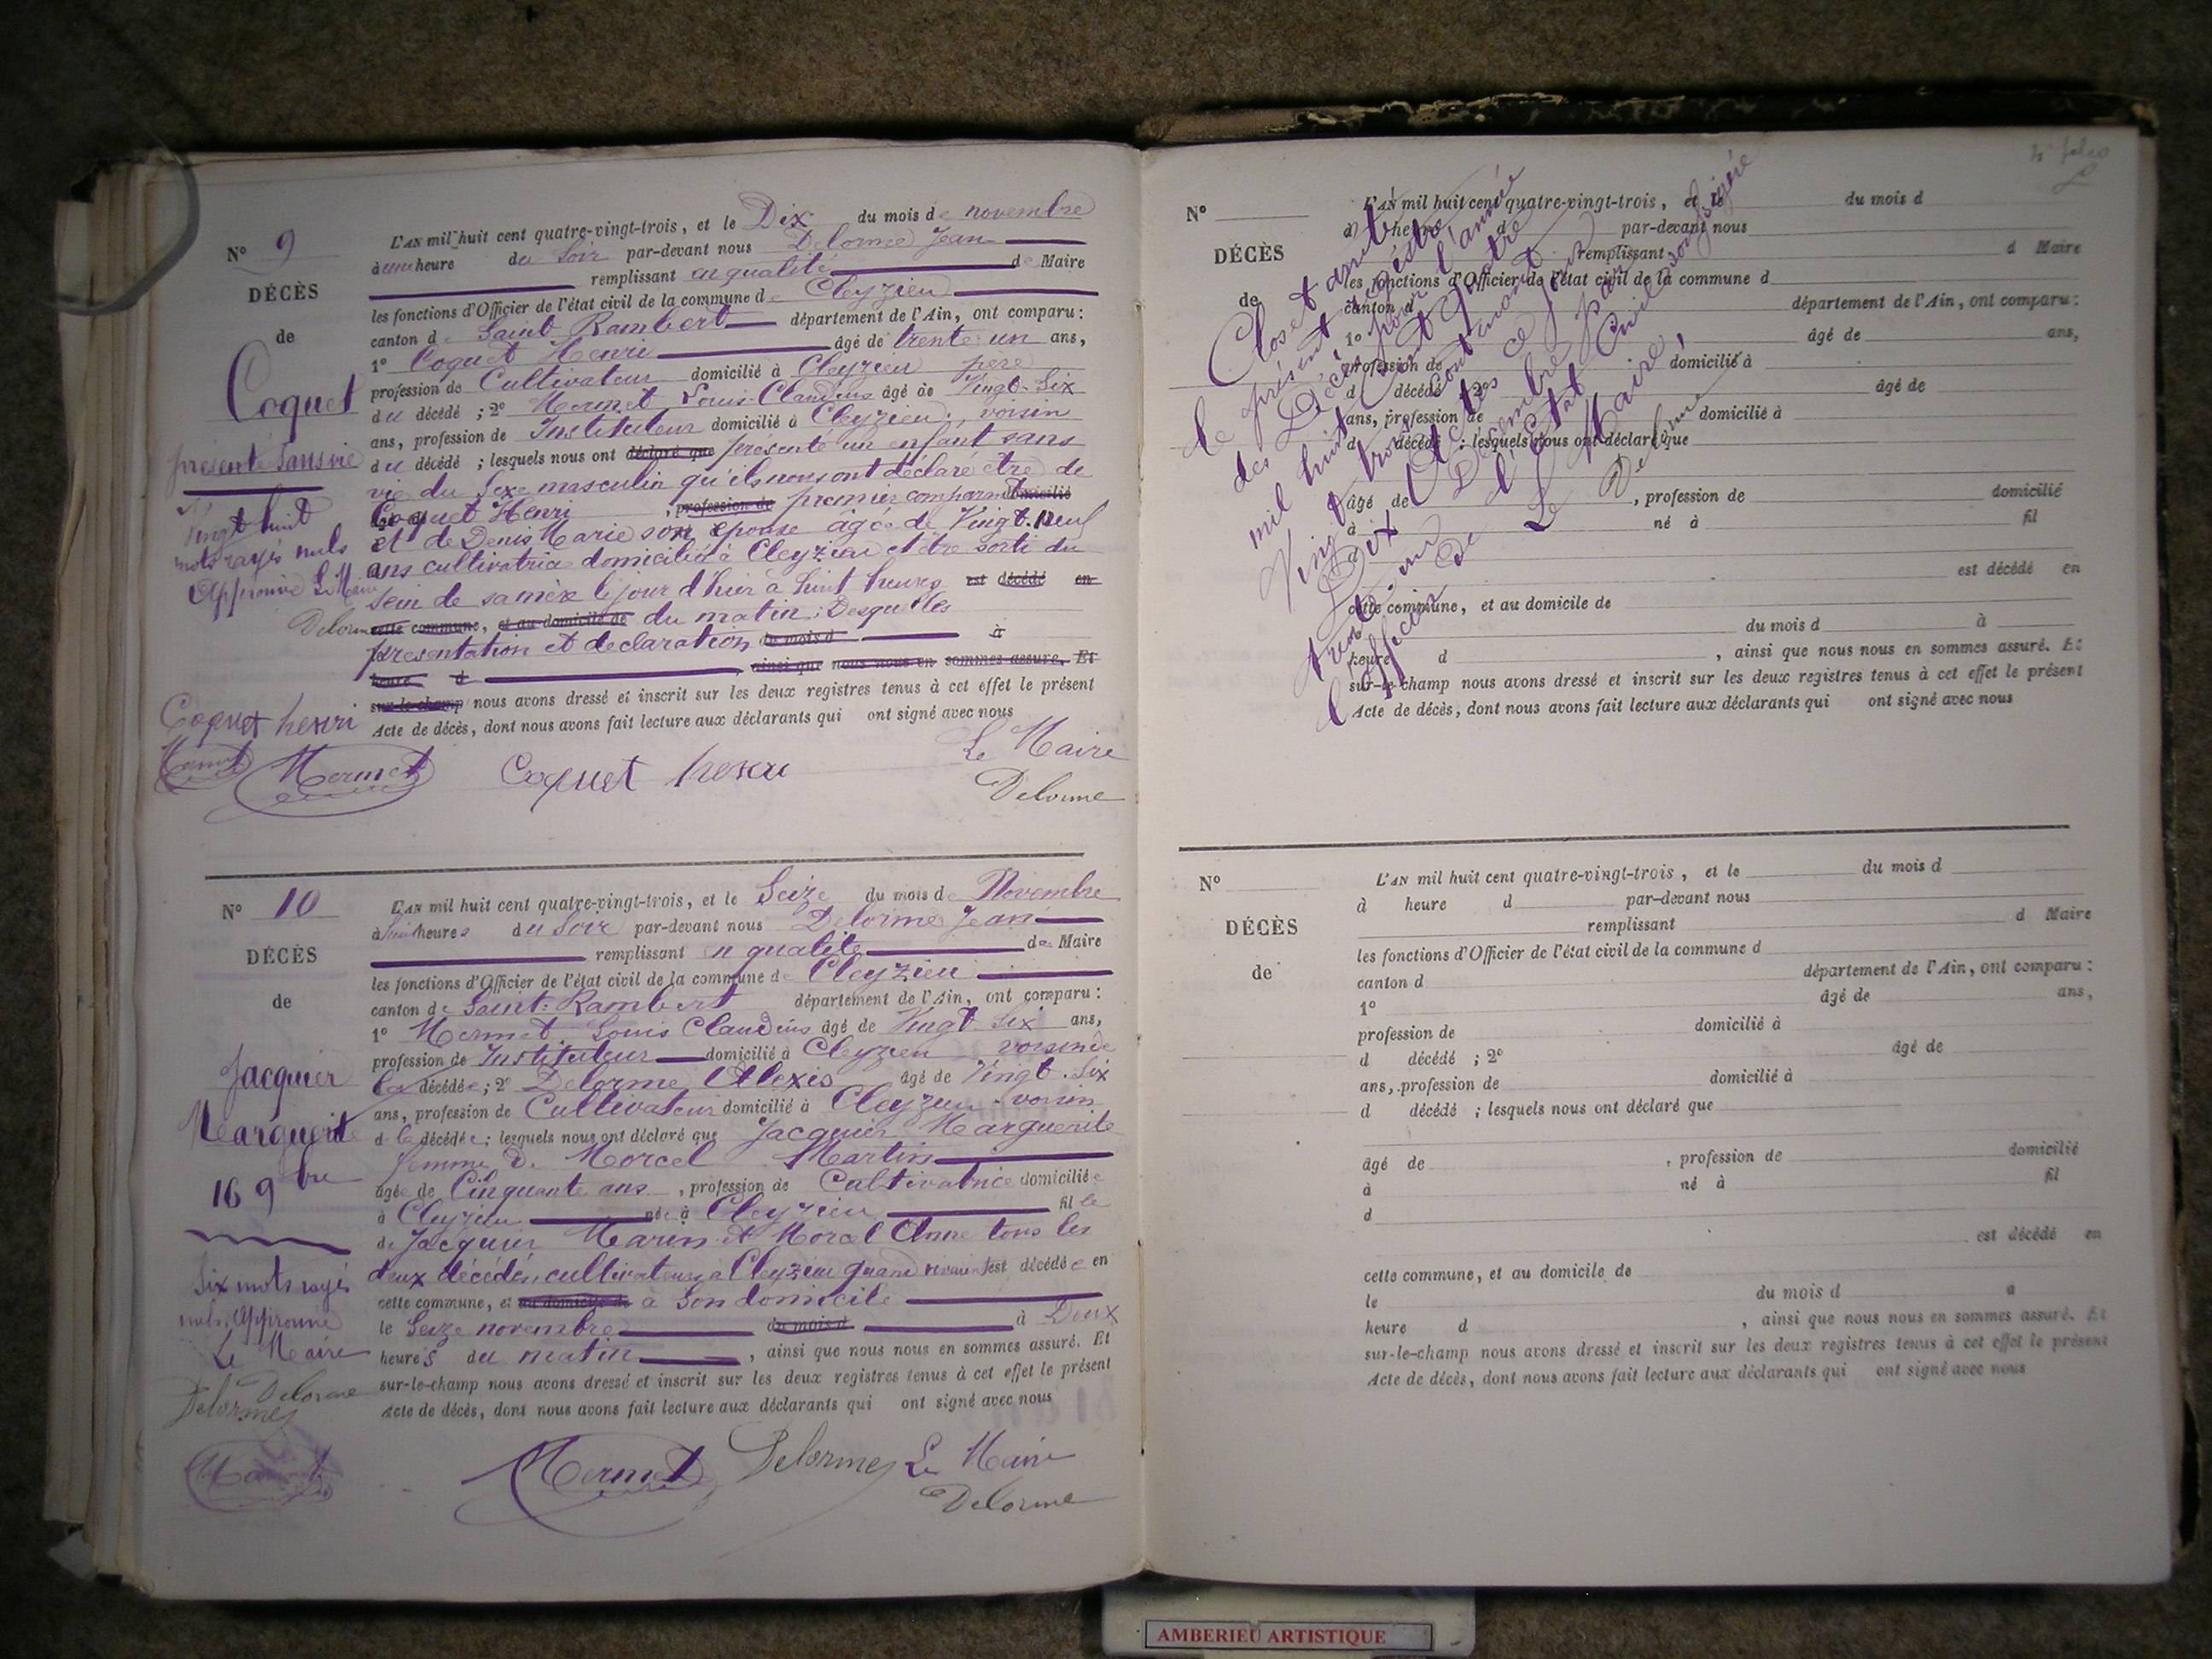 N° 9
DÉCÈS
de
Coquet
présenté sans vie
Vingt huit
mots rayés nuls
Approuvé Le Maire
Delorme
Coquet henri
Mermet
L'AN mil huit cent quatre-vingt-trois, et le Dix du mois de novembre
à une heure du Soir par-devant nous Delorme Jean
remplissant en qualité de Maire
les fonctions d'Officier de l'état civil de la commune de Cleyzieu
canton de Saint Rambert département de l'Ain, ont comparu :
1° Coquet Henri âgé de trente un ans,
profession de Cultivateur domicilié à Cleyzieu père
du décédé ; 2° Mermet Louis Claudius âgé de Vingt-Six
ans, profession de Instituteur domicilié à Cleyzieu, voisin
du décédé ; lesquels nous ont déclaré que présenté un enfant sans
vie du Sexe masculin qu'ils nous ont déclaré être de
Coquet Henri , profession de premier comparant domicilié
et de Denis Marie son épouse âgée de Vingt-neuf
ans cultivatrice domiciliés à Cleyzieu et être sorti du
sein de sa mère le jour d'hier à huit heures est décédé en
cette commune, et au domicile de du matin ; Desquelles
présentation et declaration du mois d à
heure d , ainsi que nous nous en sommes assuré. Et
sur-le-champ nous avons dressé et inscrit sur les deux registres tenus à cet effet le présent
Acte de décès, dont nous avons fait lecture aux déclarants qui ont signé avec nous
Le Maire
Mermet Coquet henri Delorme
N° 10
DÉCÈS
de
Jacquier
Marguerite
16 9bre
Six mots rayés
nuls, Approuvé
Le Maire
Delorme
Delorme
Mermet
L'AN mil huit cent quatre-vingt-trois, et le Seize du mois de Novembre
à heures du Soir par-devant nous Delorme Jean
remplissant en qualité de Maire
les fonctions d'Officier de l'état civil de la commune de Cleyzieu
canton de Saint-Rambert département de l'Ain, ont comparu :
1° Mermet Louis Claudius âgé de Vingt Six ans,
profession de Instituteur domicilié à Cleyzieu voisin de
la décédée ; 2° Delorme Alexis âgé de Vingt-Six
ans, profession de Cultivateur domicilié à Cleyzieu voisin
de la décédée ; lesquels nous ont déclaré que Jacquier Marguerite
femme de Morcel Martin
âgée de Cinquante ans , profession de Cultivatrice domiciliée
à Cleyzieu née à Cleyzieu fille
de Jacquier Marin et Morcel Anne tous les
deux décédés, cultivateurs à Cleyzieu quand vivaient est décédée en
cette commune, et au domicile de à Son domicile
le Seize novembre du mois d à Deux
heures du matin , ainsi que nous nous en sommes assuré. Et
sur-le-champ nous avons dressé et inscrit sur les deux registres tenus à cet effet le présent
Acte de décès, dont nous avons fait lecture aux déclarants qui ont signé avec nous
Mermet Delorme Le Maire
Delorme
N°
DÉCÈS
de
L'AN mil huit cent quatre-vingt-trois, et le du mois d
à heure d par-devant nous
remplissant d Maire
les fonctions d'Officier de l'état civil de la commune d
canton d département de l'Ain, ont comparu :
1° âgé de ans,
profession de domicilié à
d décédé ; 2° âgé de
ans, profession de domicilié à
d décédé ; lesquels nous ont déclaré que
âgé de , profession de domicilié
à né à fil
d
est décédé en
cette commune, et au domicile de
du mois d à
heure d , ainsi que nous nous en sommes assuré. Et
sur-le-champ nous avons dressé et inscrit sur les deux registres tenus à cet effet le présent
Acte de décès, dont nous avons fait lecture aux déclarants qui ont signé avec nous
Clos et arrêté
le présent registre
des Décès pour l'année
mil huit Cent quatre
Vingt trois contenant
Dix Actes ce jour
trente un Décembre par
l'officier de l'état Civil soussigné
Le Maire,
Delorme
N°
DÉCÈS
de
L'AN mil huit cent quatre-vingt-trois, et le du mois d
à heure d par-devant nous
remplissant d Maire
les fonctions d'Officier de l'état civil de la commune d
canton d département de l'Ain, ont comparu :
1° âgé de ans,
profession de domicilié à
d décédé ; 2° âgé de
ans, profession de domicilié à
d décédé ; lesquels nous ont déclaré que
âgé de , profession de domicilié
à né à fil
d
est décédé en
cette commune, et au domicile de
le du mois d a
heure d , ainsi que nous nous en sommes assuré. Et
sur-le-champ nous avons dressé et inscrit sur les deux registres tenus à cet effet le présent
Acte de décès, dont nous avons fait lecture aux déclarants qui ont signé avec nous
AMBERIEU ARTISTIQUE